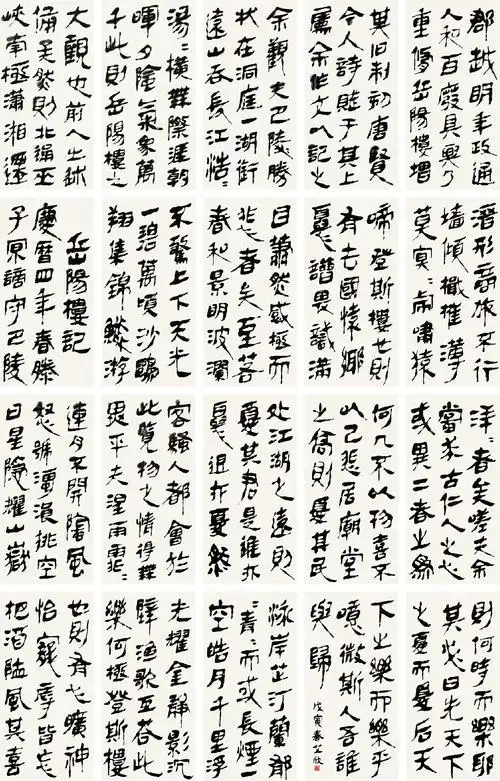 郡越明年政通
人和百廢具興乃
重修岳陽樓增
其旧制刻唐賢
今人詩賦于其上
屬余作文以記之
余觀夫巴陵勝
狀在洞庭一湖銜
遠山吞長江浩〻
湯〻橫無際涯朝
暉夕陰氣象萬
千此則岳陽樓之
大觀也前人之述
備矣然則北通巫
峽南極瀟湘遷
潛形商旅不行
檣傾檝摧薄
莫冥〻虎嘯猿
啼登斯樓也則
有去國懷鄉
憂讒畏譏滿
目蕭然感極而
悲者矣至若
春和景明波瀾
不驚上下天光
一碧萬頃沙鷗
翔集錦鱗游
岳陽樓記
慶曆四年春滕
子京謫守巴陵
洋〻者矣嗟夫余
嘗求古仁人之心
或異二者之為
何哉不以物喜不
以己悲居廟堂
之高則憂其民
处江湖之遠則
憂其君是進亦
憂退亦憂然
客騷人都會於
此覽物之情得無
異乎夫淫雨霏〻
連月不開陰風
怒號濁浪排空
日星隱耀山嶽
則何時而樂耶
其必曰先天下
之憂而憂后天
下之樂而樂乎
噫微斯人吾誰
與歸
戊寅春
泳岸芷汀蘭郁
〻青〻而或長煙一
空皓月千里浮
光耀金靜影沉
璧漁歌互答此
樂何極登斯樓
也則有心曠神
怡寵辱皆忘
把酒臨風其喜